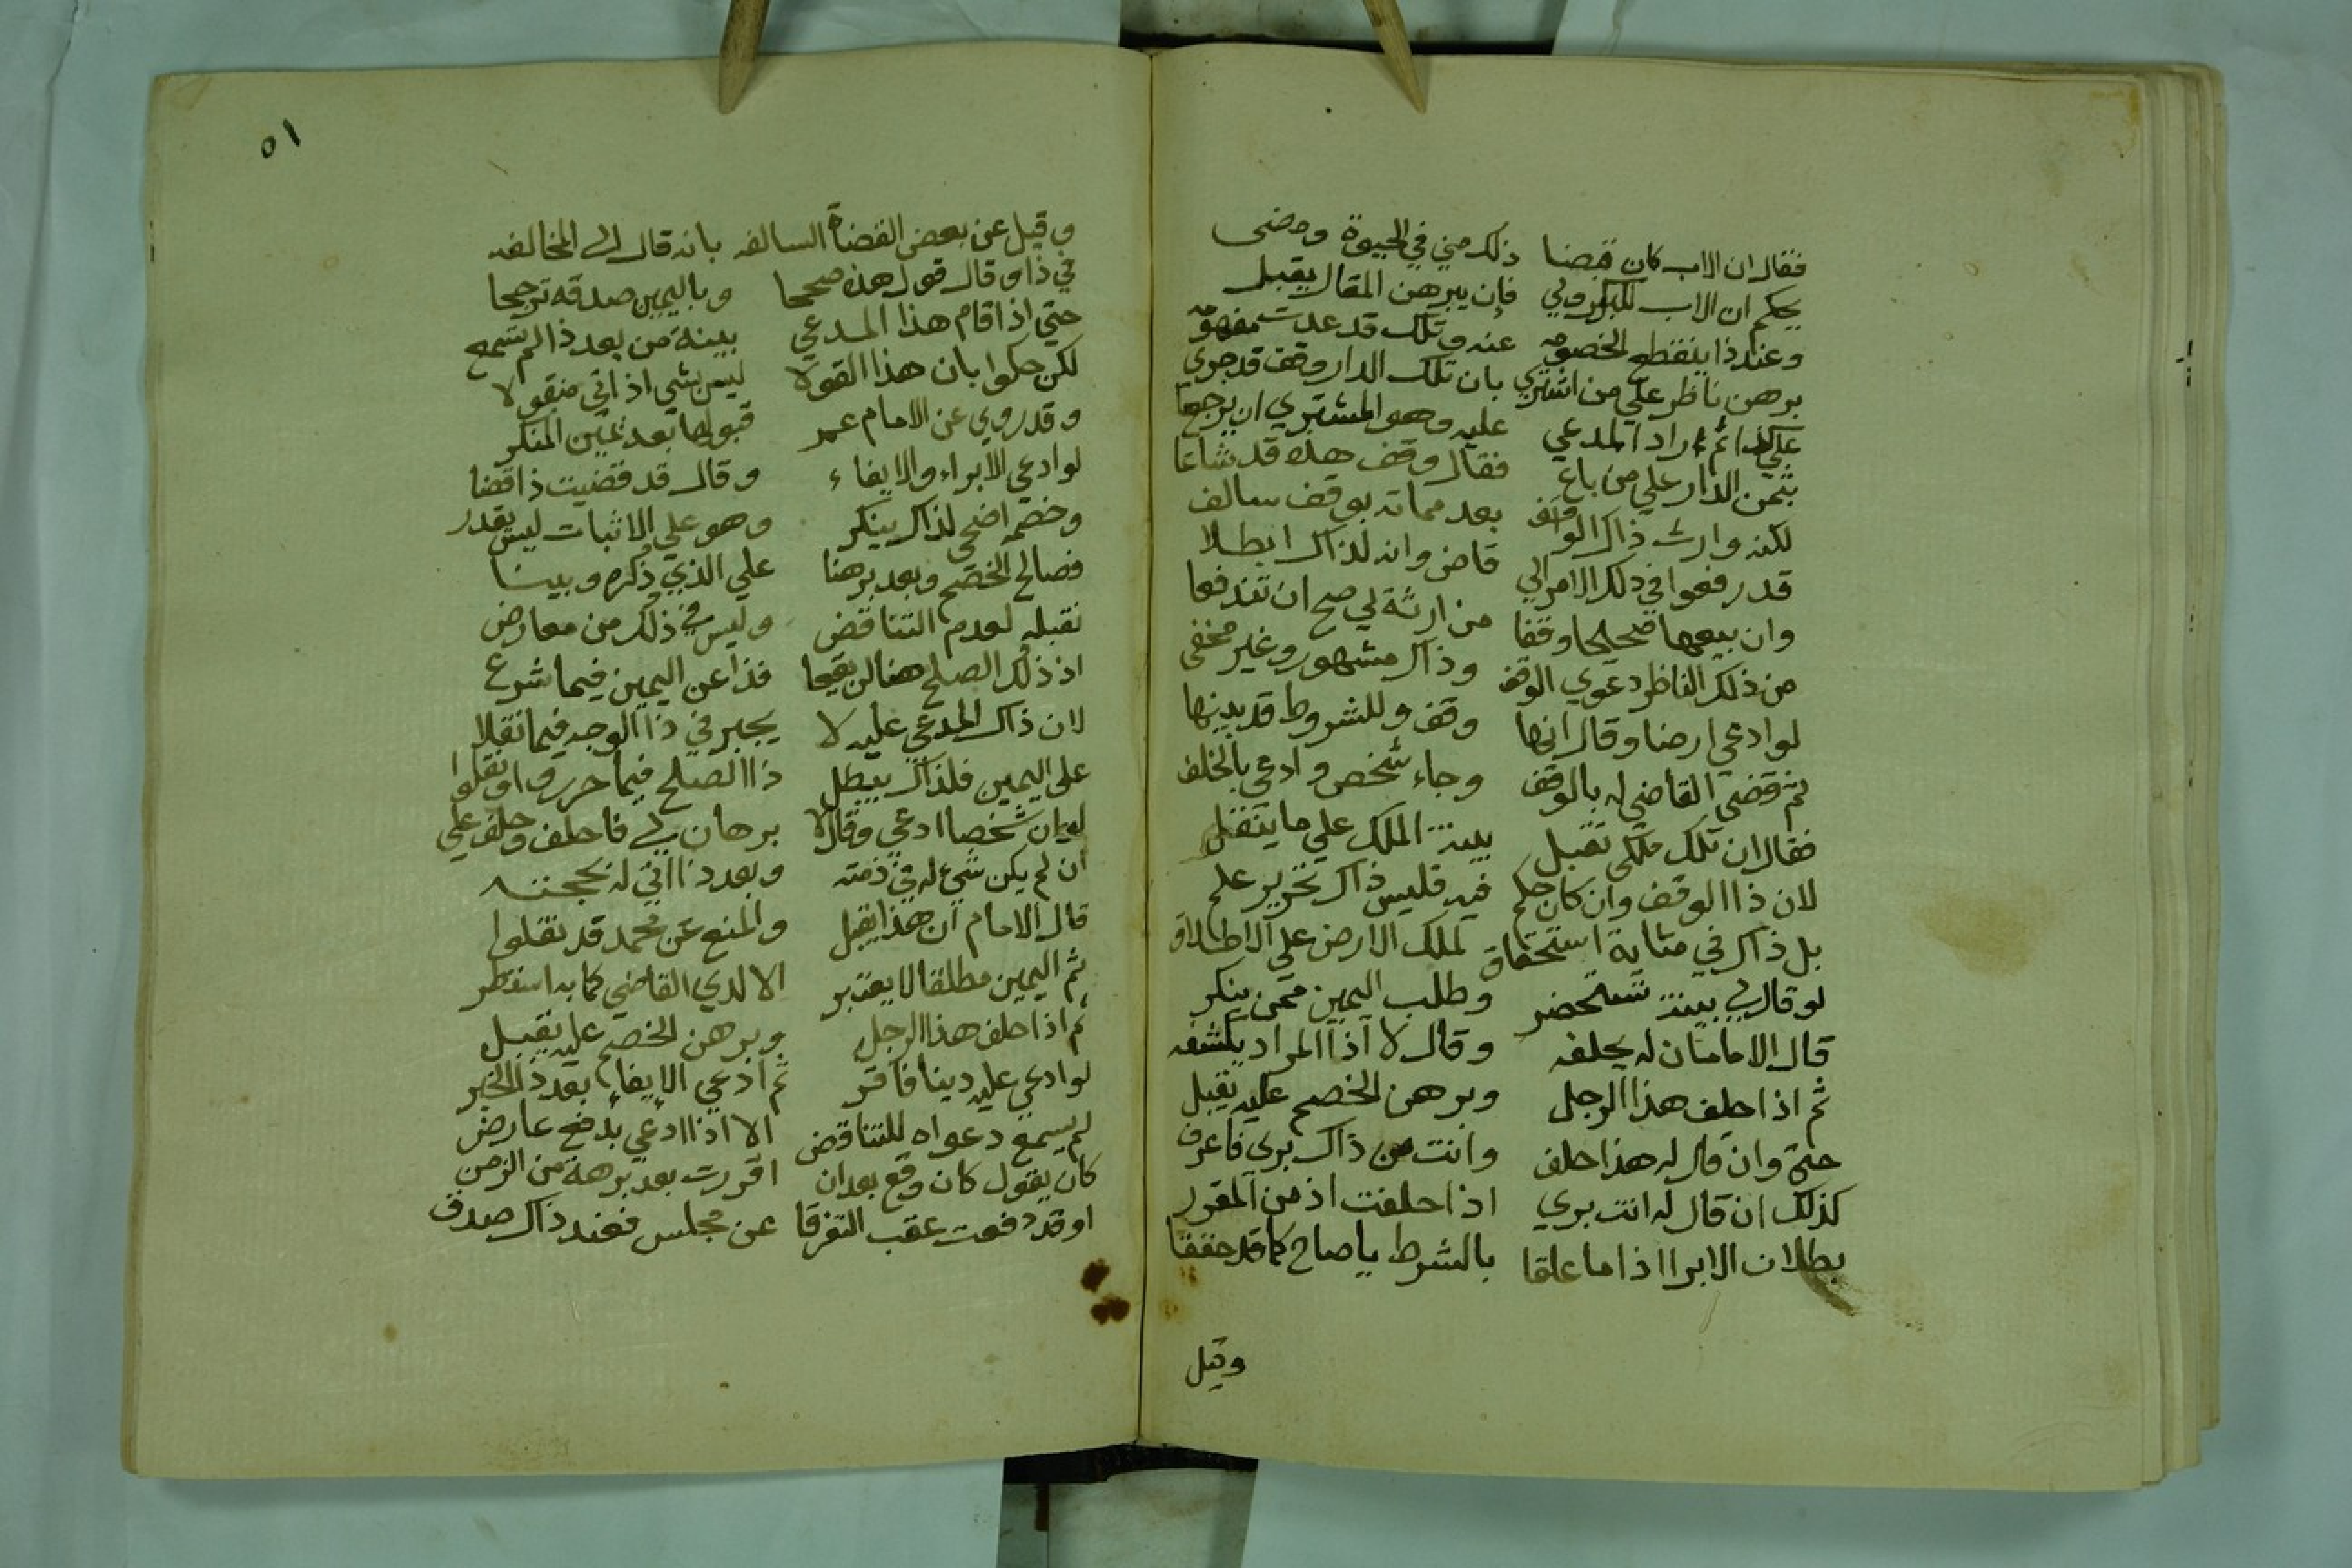 فقال ان الاب كان قبضا ذلك مني في الحيوة ومضى
يحكم ان الاب للبكر ولي فإن يبرهن المقال يقبل
وعند ذا ينقطع الخصومه عنه وتلك قد عدت مفهومه
برهن ناظر علي من اشتري بان تلك الدار وقف قد جري
عليه ثم راد المدعي عليه وهو المشتري ان يرجعا
بثمن الدار علي من باع فقال وقف هذه قد شاعا
لكنه وارث ذاك الواقف بعد مماته بوقف سالف
قد رفعوا في ذلك الامر الي قاض وانه لذاك ابطلا
وان بيعها صحيحا وقفا من ارثه لي صح ان تندفعا
من ذلك الناظر دعوي الوقف وذاك مشهور وغير مخفى
لو ادعي ارضا وقال انها وقف وللشروط قد بينها
ثم قضى القاضي له بالوقف وجاء شخص وادعي بالخلف
فقال ان تلك ملكي تقبل بينة الملك علي ما ينقل
لان ذا الوقف وان كان حكم فيه فليس ذاك تحرير علم
بل ذاك في مثابة استحقاق لملك الارض علي الاطلاق
لو قال لي بينة ستحضر وطلب اليمين ممن ينكر
قال الامامان له يحلفه وقال لا اذا المراد يكشفه
ثم اذا حلف هذا الرجل وبرهن الخصم عليه يقبل
حتي وان قال له هذا حلف وانت من ذاك بري فاعرف
كذلك ان قال له انت بري اذا حلفت اذ من المقرر
بطلان الابرا اذا ما علقا بالشرط يا صاح كما قد حققا
وقيل
٥١
وقيل عن بعض القضاة السالفه بانه قال لي المخالفه
في ذا وقال قول هذه صححا وباليمين صدقه ترجحا
حتي اذا اقام هذا المدعي بينة من بعد ذا لم تسمع
لكن حكوا بان هذا القولا ليس بشي اذ اتي منقولا
وقد روي عن الامام عمر قبولها بعد يمين المنكر
لو ادعي الابراء والايفاء وقال قد قضيت ذا قضا
وخصمه اضحى لذاك ينكر وهو علي الاثبات ليس يقدر
فصالح الخصم وبعد برهنا علي الذي ذكره وبينا
نقبله لعدم التناقض وليس في ذلك من معارض
اذ ذلك الصلح هنا لن يقعا فذا عن اليمين فيما شرع
لان ذاك المدعي عليه لا يجبر في ذا الوجه فيما نقلا
على اليمين فلذاك يبطل ذا الصلح فيما حرروا ونقلوا
لو ان شخصا ادعي وقال لا برهان لي فاحلف وحلف علي
ان لم يكن شيء له في ذمته وبعد ذا اتي له بحجته
قال الامام ان هذا يقبل والمنع عن محمد قد نقلوا
ثم اليمين مطلقا لا يعتبر الا لدي القاضي كما به استقر
ثم اذا حلف هذا الرجل وبرهن الخصم عليه يقبل
لو ادعي عليه دينا فاقر ثم ادعي الايفاء بعد ذا الخبر
لم يسمع دعواه للتناقض الا اذا ادعي بدفع عارض
كان يقول كان وقع بعد ان اقررت بعد برهة من الزمن
او قد دفعت عقب التفرقا عن مجلس فعند ذاك صدق